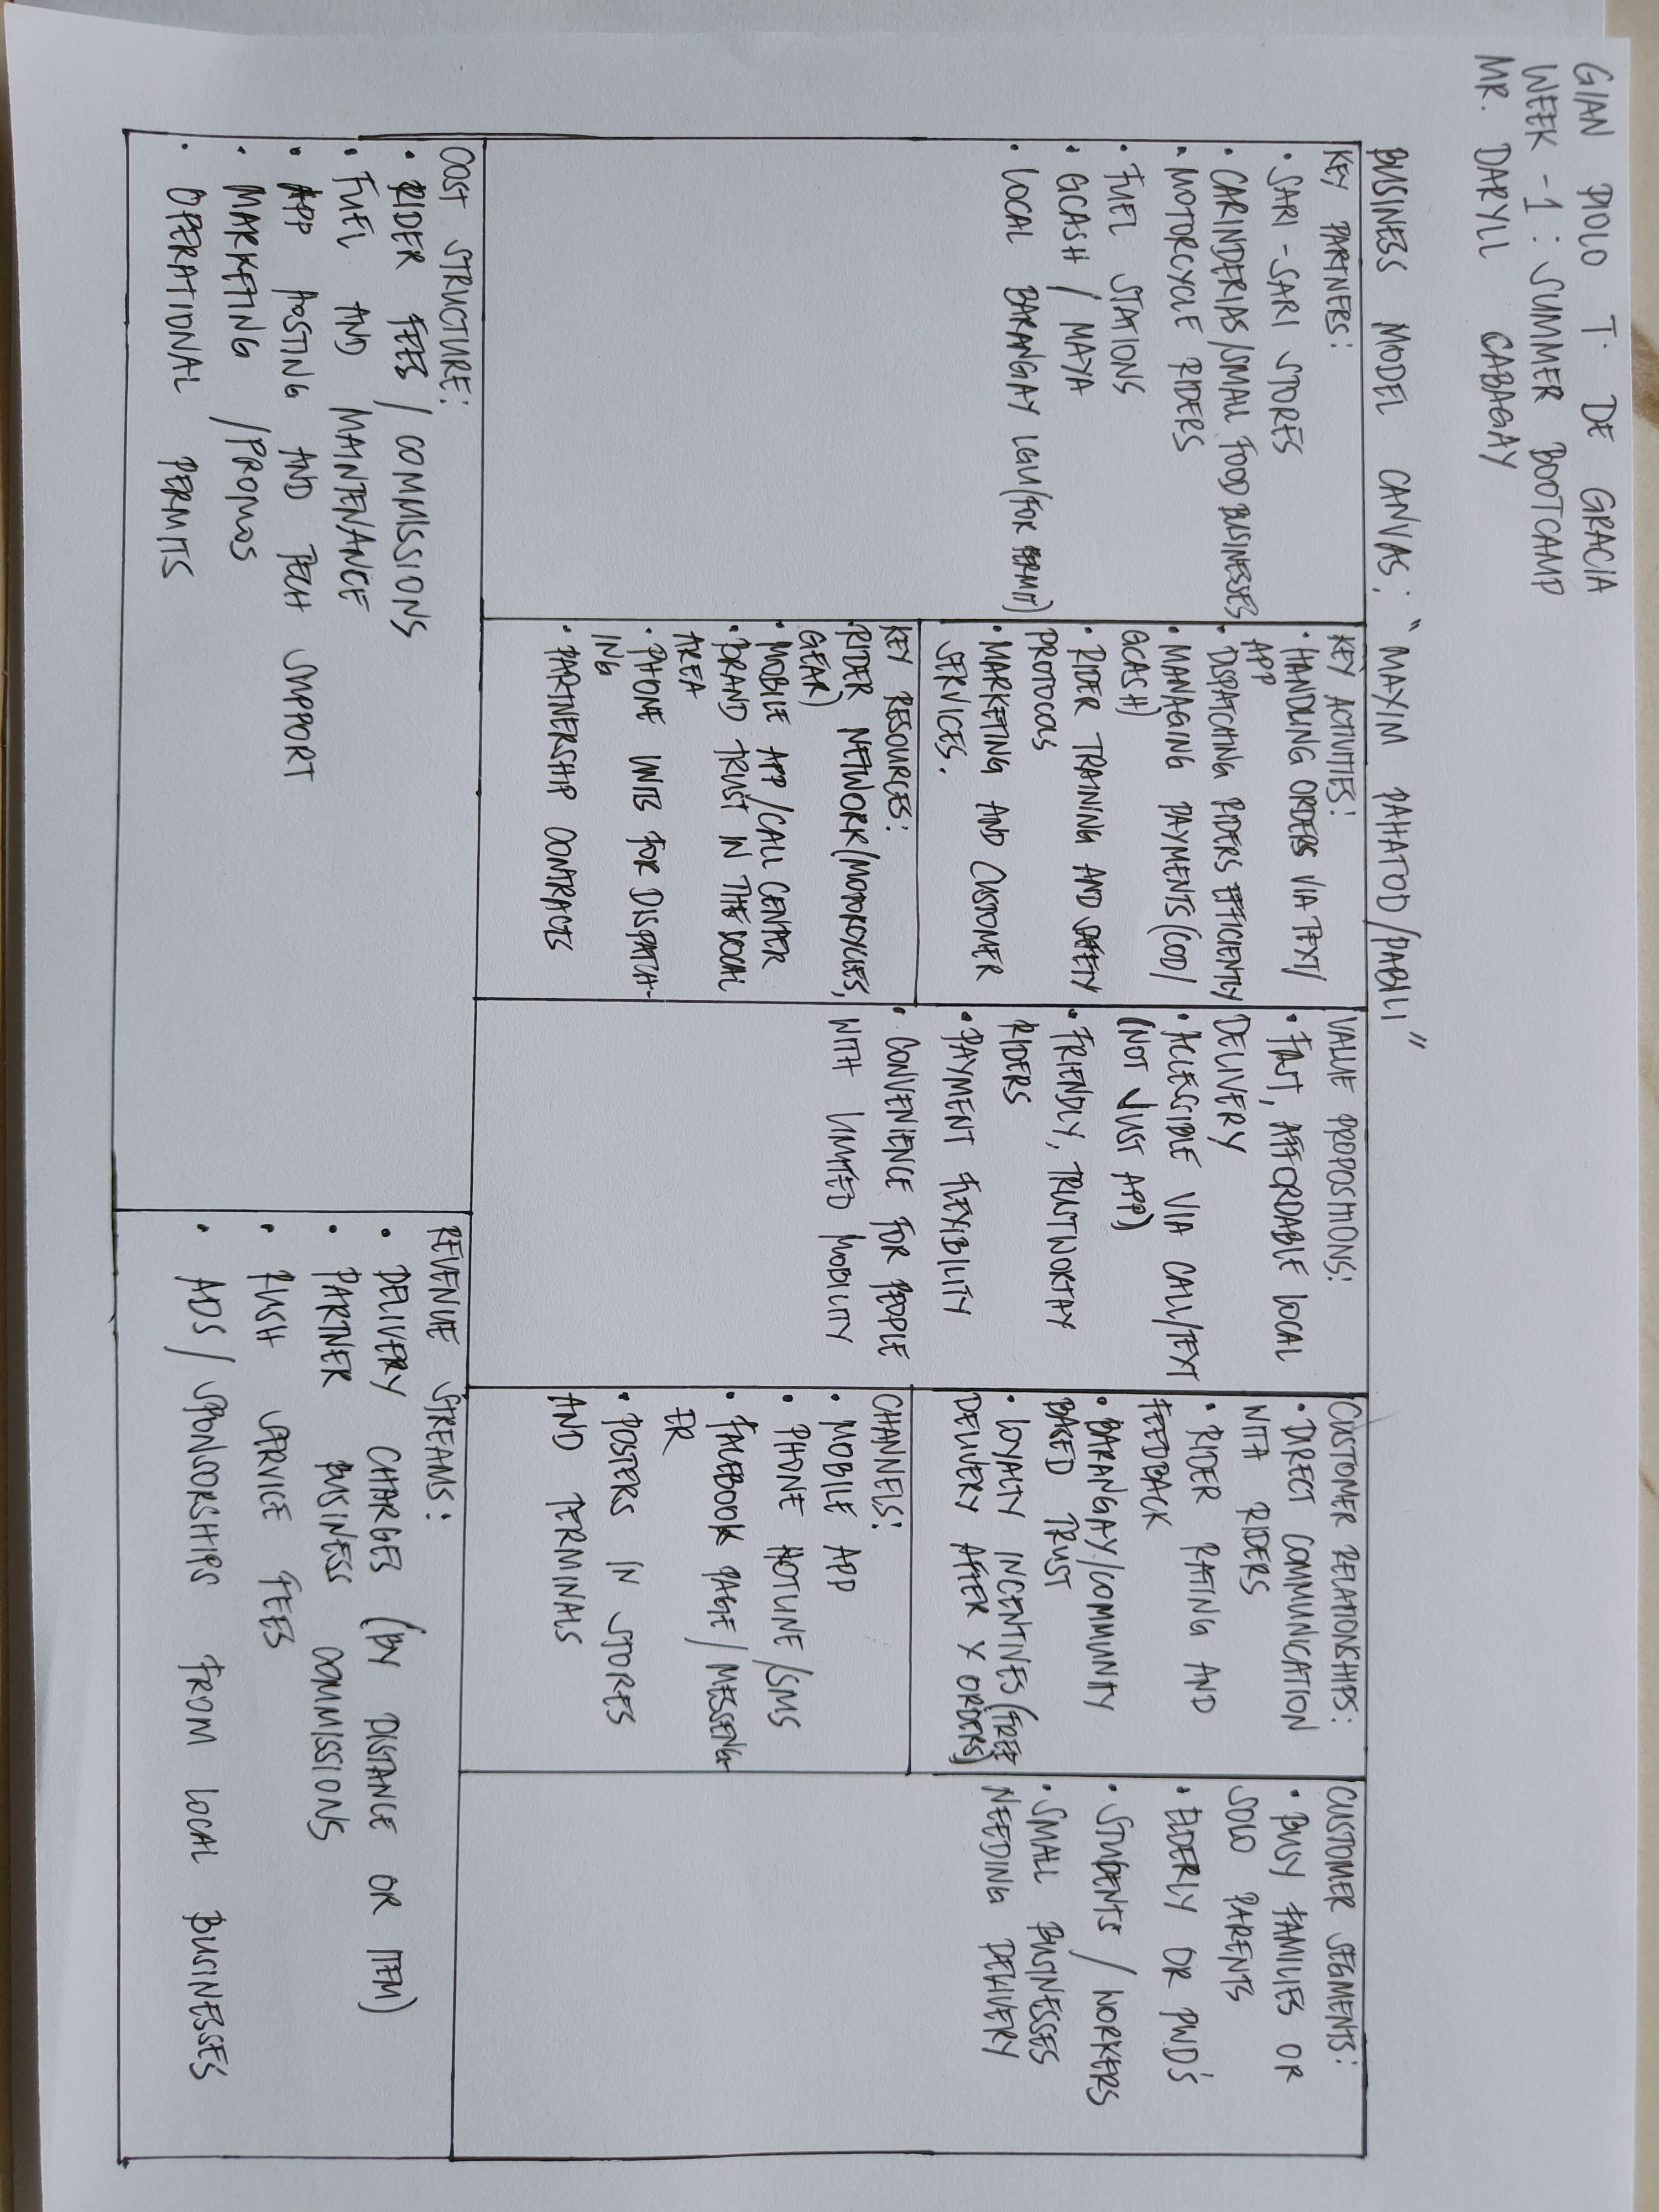 GIAN PIOLO T. DE GRACIA
WEEK -1 : SUMMER BOOTCAMP
MR. DARYLL CABAGAY
BUSINESS MODEL CANVAS: "MAXIM PAHATOD/PABILI"
KEY PARTNERS:
• SARI-SARI STORES
• CARINDERIAS/SMALL FOOD BUSINESSES
• MOTORCYCLE RIDERS
• FUEL STATIONS
• GCASH / MAYA
• LOCAL BARANGAY LGU (FOR PERMIT)
KEY ACTIVITIES:
• HANDLING ORDERS VIA TEXT/
APP
• DISPATCHING RIDERS EFFICIENTLY
• MANAGING PAYMENTS (COD/
GCASH)
• RIDER TRAINING AND SAFETY
PROTOCOLS
• MARKETING AND CUSTOMER
SERVICES.
KEY RESOURCES:
• RIDER NETWORK (MOTORCYCLES,
GEAR)
• MOBILE APP/CALL CENTER
• BRAND TRUST IN THE LOCAL
AREA
• PHONE UNITS FOR DISPATCH-
ING
• PARTNERSHIP CONTRACTS
VALUE PROPOSITIONS:
• FAST, AFFORDABLE LOCAL
DELIVERY
• ACCESSIBLE VIA CALL/TEXT
(NOT JUST APP)
• FRIENDLY, TRUSTWORTHY
RIDERS
• PAYMENT FLEXIBILITY
• CONVENIENCE FOR PEOPLE
WITH LIMITED MOBILITY
CUSTOMER RELATIONSHIPS:
• DIRECT COMMUNICATION
WITH RIDERS
• RIDER RATING AND
FEEDBACK
• BARANGAY/COMMUNITY
BASED TRUST
• LOYALTY INCENTIVES (FREE
DELIVERY AFTER X ORDERS)
CHANNELS:
• MOBILE APP
• PHONE HOTLINE/SMS
• FACEBOOK PAGE/MESSENG-
ER
• POSTERS IN STORES
AND TERMINALS
CUSTOMER SEGMENTS:
• BUSY FAMILIES OR
SOLO PARENTS
• ELDERLY OR PWD'S
• STUDENTS / WORKERS
• SMALL BUSINESSES
NEEDING DELIVERY
COST STRUCTURE:
• RIDER FEES / COMMISSIONS
• FUEL AND MAINTENANCE
• APP HOSTING AND TECH SUPPORT
• MARKETING /PROMOS
• OPERATIONAL PERMITS
REVENUE STREAMS:
• DELIVERY CHARGES (BY DISTANCE OR ITEM)
• PARTNER BUSINESS COMMISSIONS
• RUSH SERVICE FEES
• ADS/SPONSORSHIPS FROM LOCAL BUSINESSES